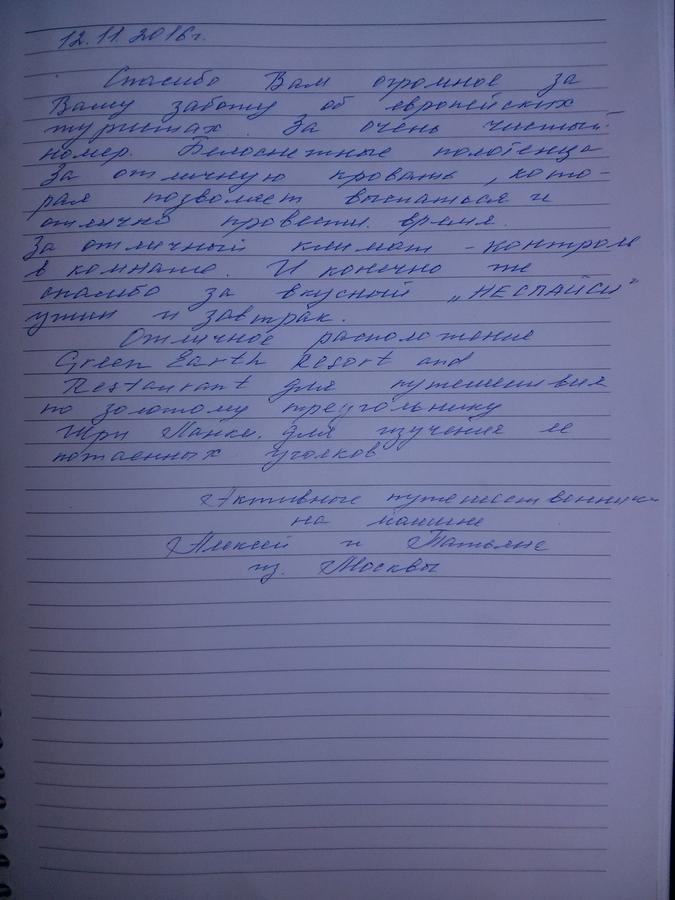 12.11.2016г.
Спасибо Вам огромное за
Вашу заботу об европейских
туристах. За очень чистый
номер. Белоснежные полотенца
За отличную кровать, кото-
рая позволяет выспаться и
отлично провести время.
За отличный климат-контроль
в комнате. И конечно же
спасибо за вкусный „НЕСПАЙСИ"
ужин и завтрак.
Отличное расположение
Green Earth Resort and
Restaurant для путешествия
по золотому треугольнику
Шри Ланки. Для изучения ее
потаенных уголков
Активные путешественники
на машине
Алексей и Татьяна
из Москвы